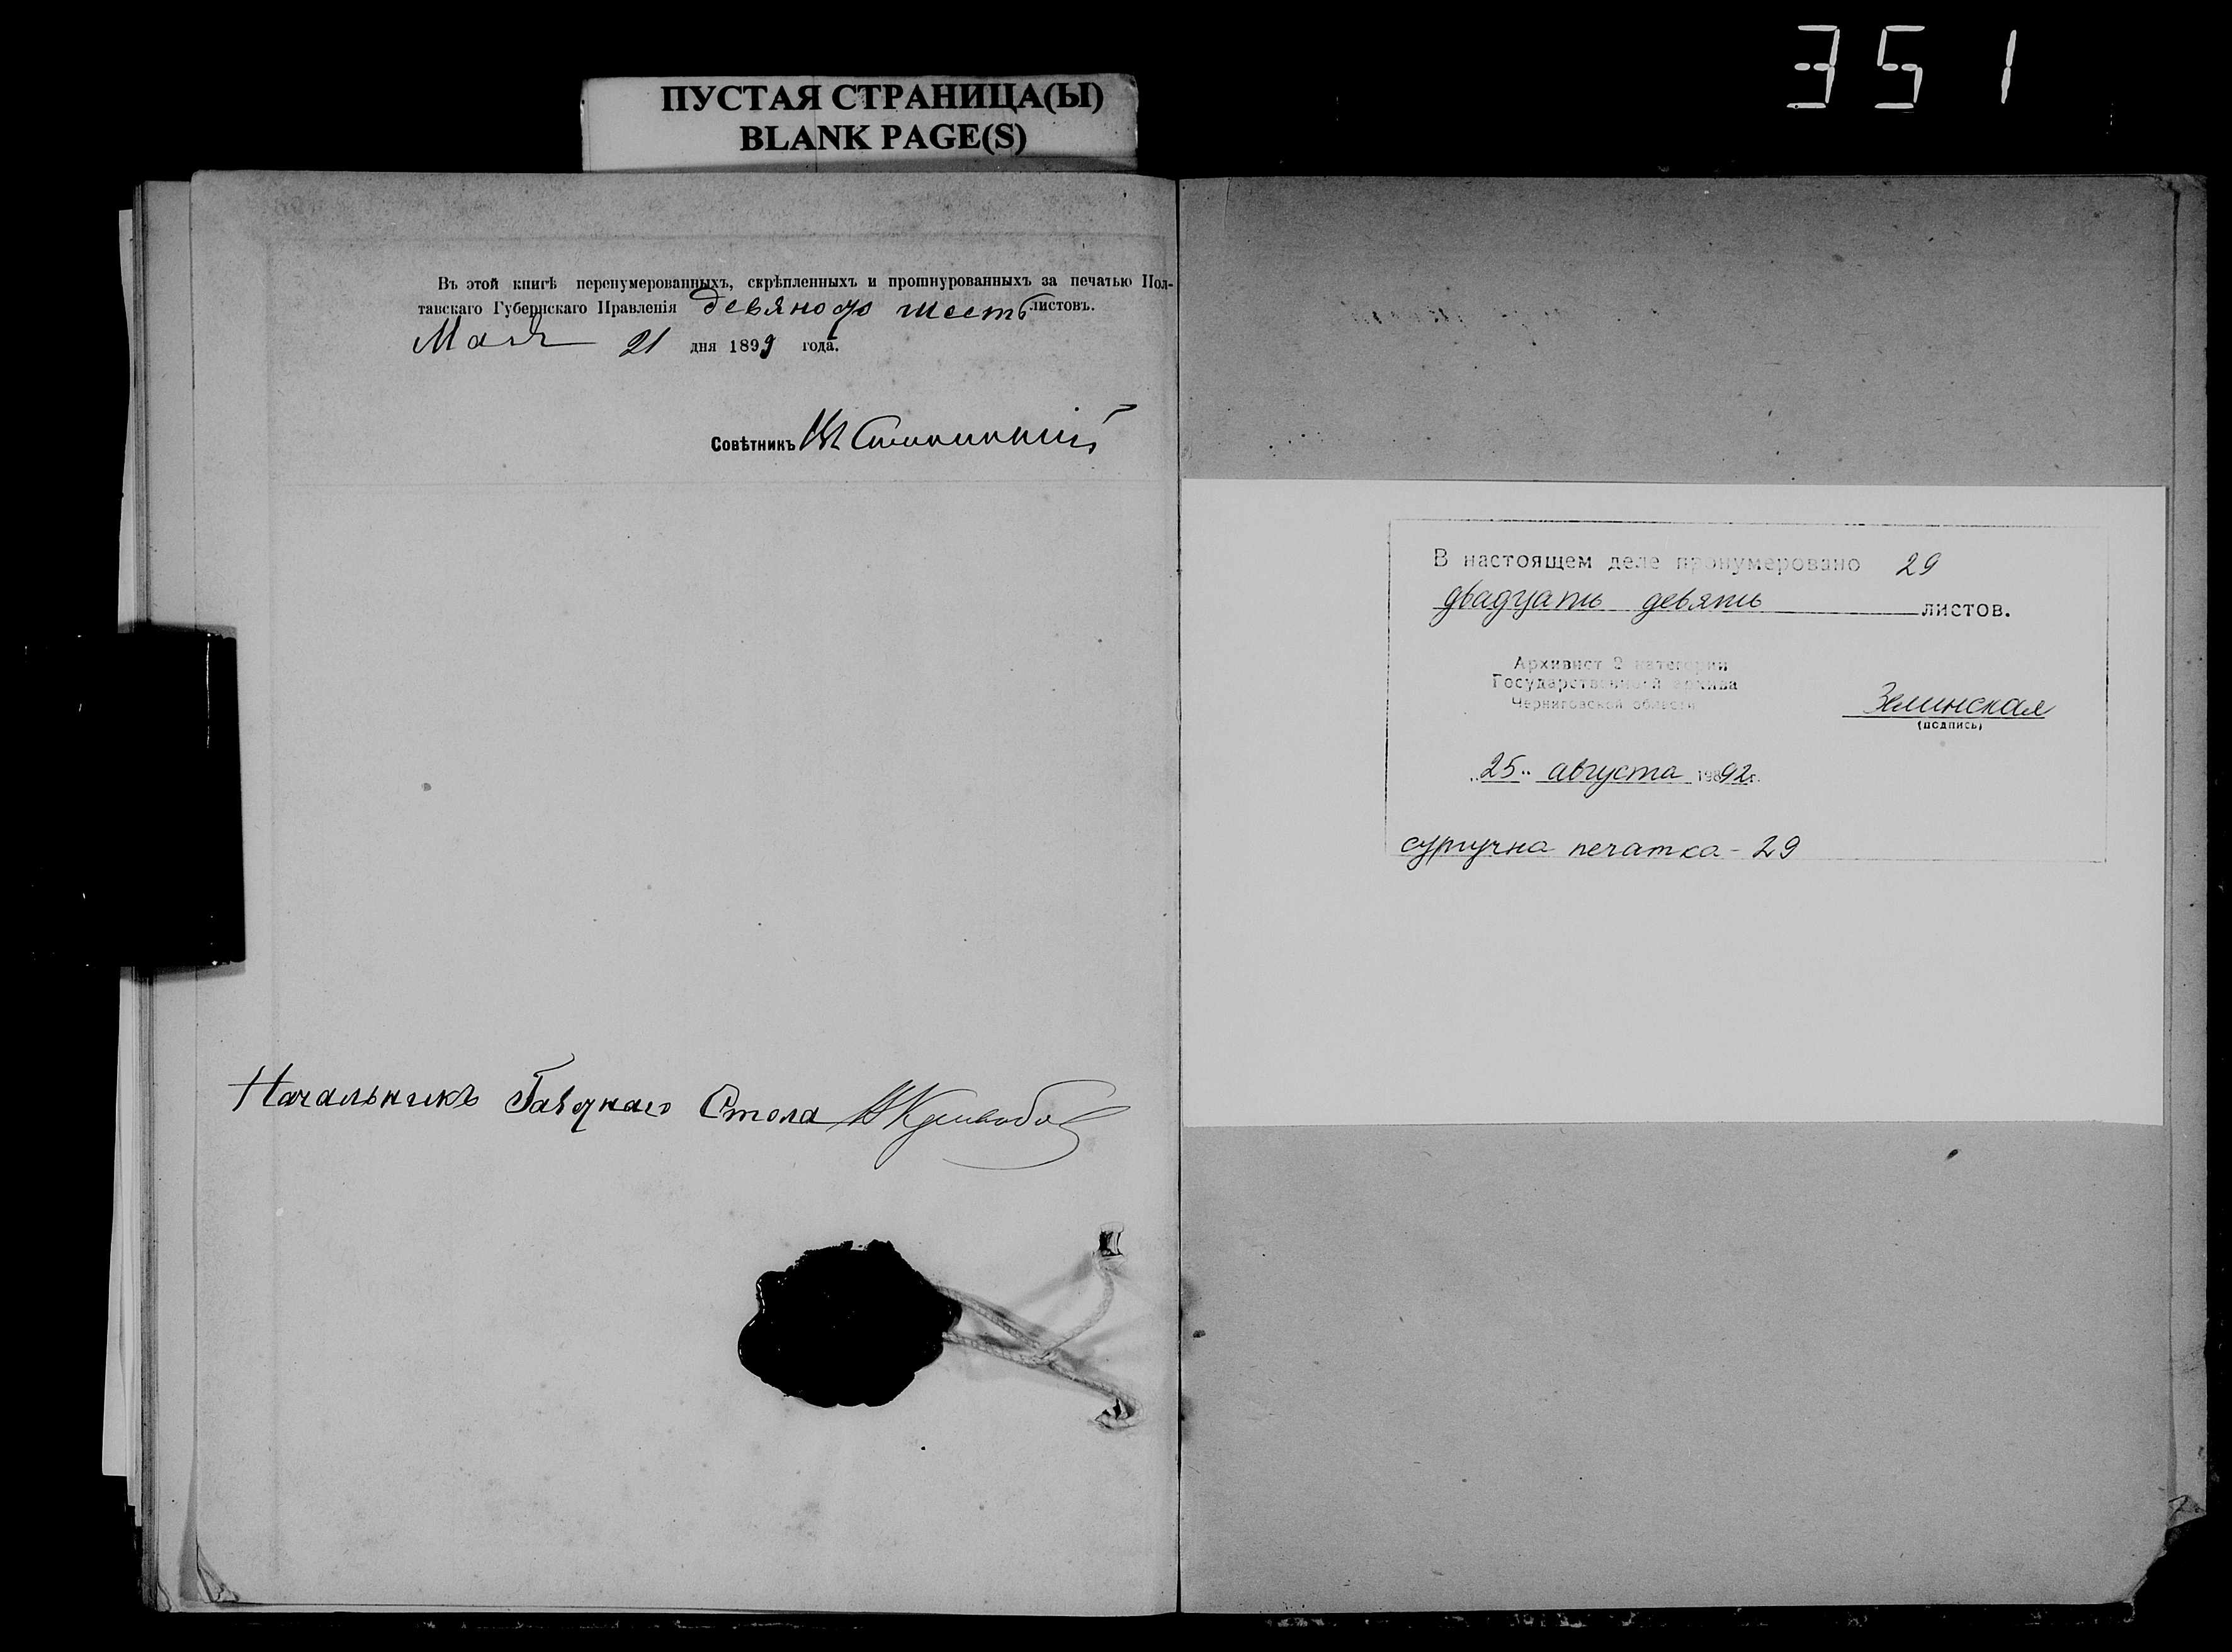 351
ПУСТАЯ СТРАНИЦА(Ы)
BLANK PAGE(S)
Въ этой книгѣ перенумерованныхъ, скрѣпленныхъ и прошнурованныхъ за печатью Пол-
тавскаго Губернскаго Правленія девяносто шесть листовъ.
Мая 21 дня 1899 года.
Совѣтникъ
Начальникъ Стола
В настоящем деле пронумеровано 29
двадцать девять листов.
Архивист 2 категории
Государственного архива
Черниговской области
Зелинская
(подпись)
„25" августа 19892г.
сургучна печатка - 29